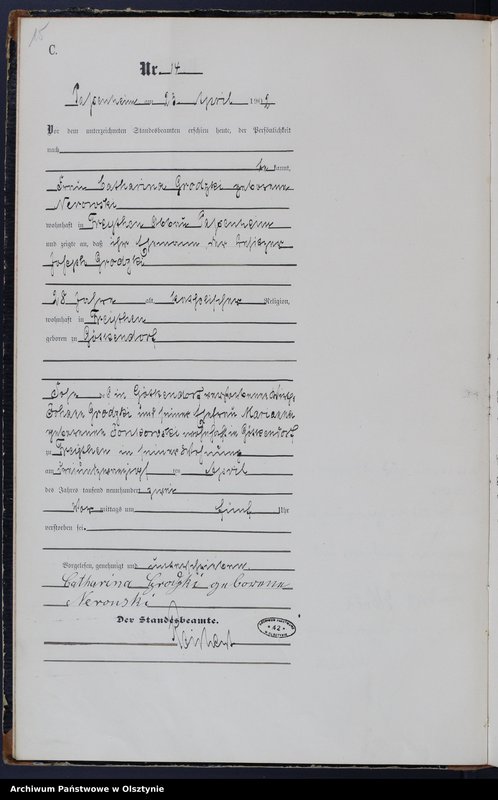 15
C.
Nr. 14
am 23. April 1902
Vor dem unterzeichneten Standesbeamten erschien heute, der Persönlichkeit
nach
be kannt,
Frau Catharina Grodzki geborene
Nerowski
wohnhaft in Freythen
und zeigte an, daß ihr Ehemann, der Besitzer
Joseph Grodzki
28 Jahre alt, katholischer Religion,
wohnhaft in Freythen
geboren zu Götkendorf
Sohn des in Götkendorf verstorbenen
Johann Grodzki und seiner Ehefrau Marianna
geborenen wohnhaft in Götkendorf
zu Freythen in seiner Wohnung
am ten April
des Jahres tausend neunhundert zwei
Vor mittags um fünf Uhr
verstorben sei.
Vorgelesen, genehmigt und unterschrieben.
Catharina Grodzki geborene
Nerowski
Der Standesbeamte.
42
Archiwum Państwowe w Olsztynie